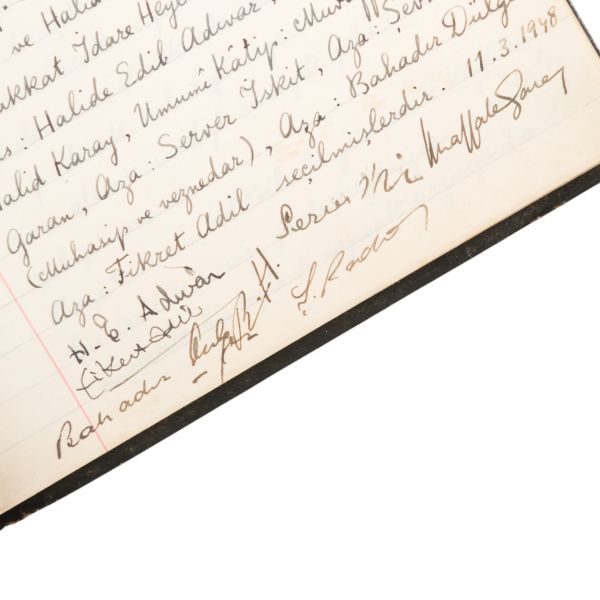 ve Halid
akkat İdare Heye
s: Halide Edib Adıvar,
alid Karay, Umumî Kâtip: Muva
Garan, Aza: Server İskit, Aza: Şev
(Muhasip ve veznedar), Aza: Bahadır Dülge
Aza: Fikret Adil seçilmişlerdir. 11.3.1948
H. E. Adıvar H.
Fikret Adil
Bahadır